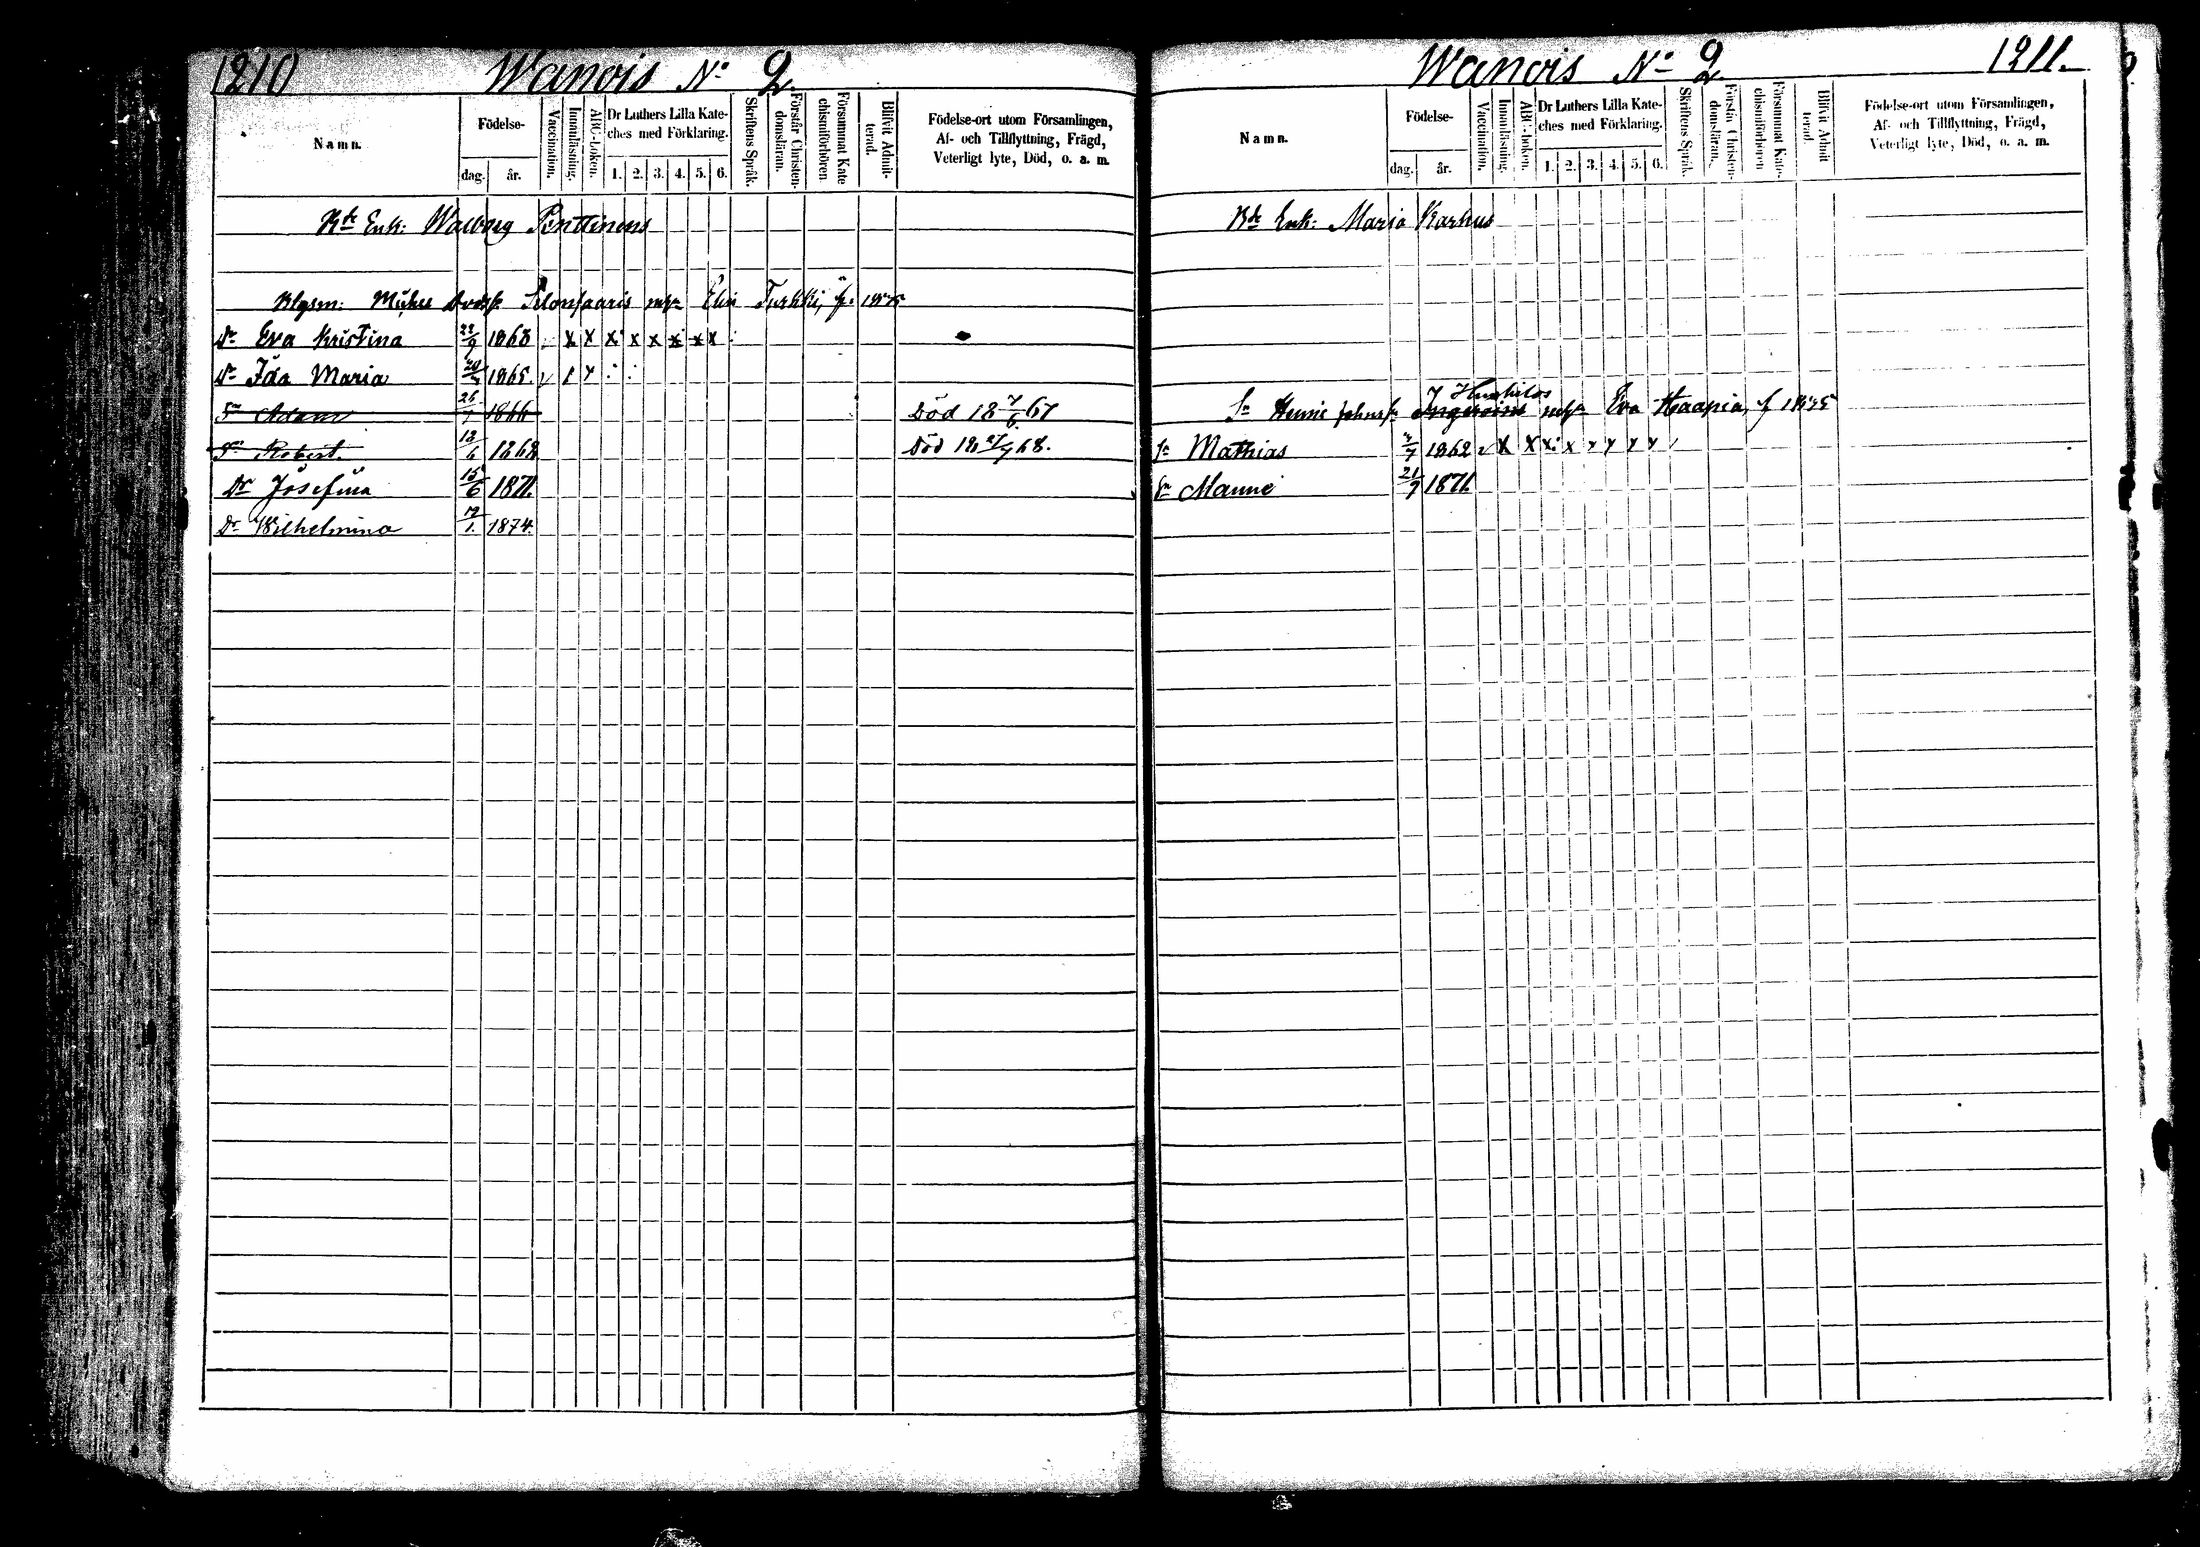 1210 Wanois No 2
Namn.
Födelse-
dag.
år.
Vaccination.
Innanläsning.
ABC-boken.
Dr Luthers Lilla Kate-
ches med Förklaring.
1. 2. 3. 4. 5. 6.
Skriftens Språk.
Förstår Christen-
domsläran.
Försummat Kate
chismiförhören
Blifvit Admit-
terad.
Födelse-ort utom Församlingen,
Af- och Tillflyttning, Frägd,
Veterligt lyte, Död, o. a. m.
Enk: Walborg Penttinens
Elin Turkki, f.
Dr Eva Kristina 22/9 1863 x x x x x x x x
Dr Ida Maria 1865.
Sn Adam 26/7 1866 Död 18 7/6 67
Sn Robert. 12/6 1868 Död 18 68.
Dr Josefina 15/6 1871.
Dr Wilhelmina 12/1. 1874.
Wanois No 2 1211.
Namn.
Födelse-
dag.
år.
Vaccination.
Innanläsning.
ABC-boken.
Dr Luthers Lilla Kate-
ches med Förklaring.
1. 2. 3. 4. 5. 6.
Skriftens Språk.
Förstår Christen-
domsläran.
Försummat Kate-
chismiförhören
Blifvit Admit
terad.
Födelse-ort utom Församlingen,
Af- och Tillflyttning, Frägd,
Veterligt lyte, Död, o. a. m.
Enk: Maria Karhus
Eva Haapia, f 1835
Sn Mathias 1862 x x x x
Sn Manne 21/9 1871.